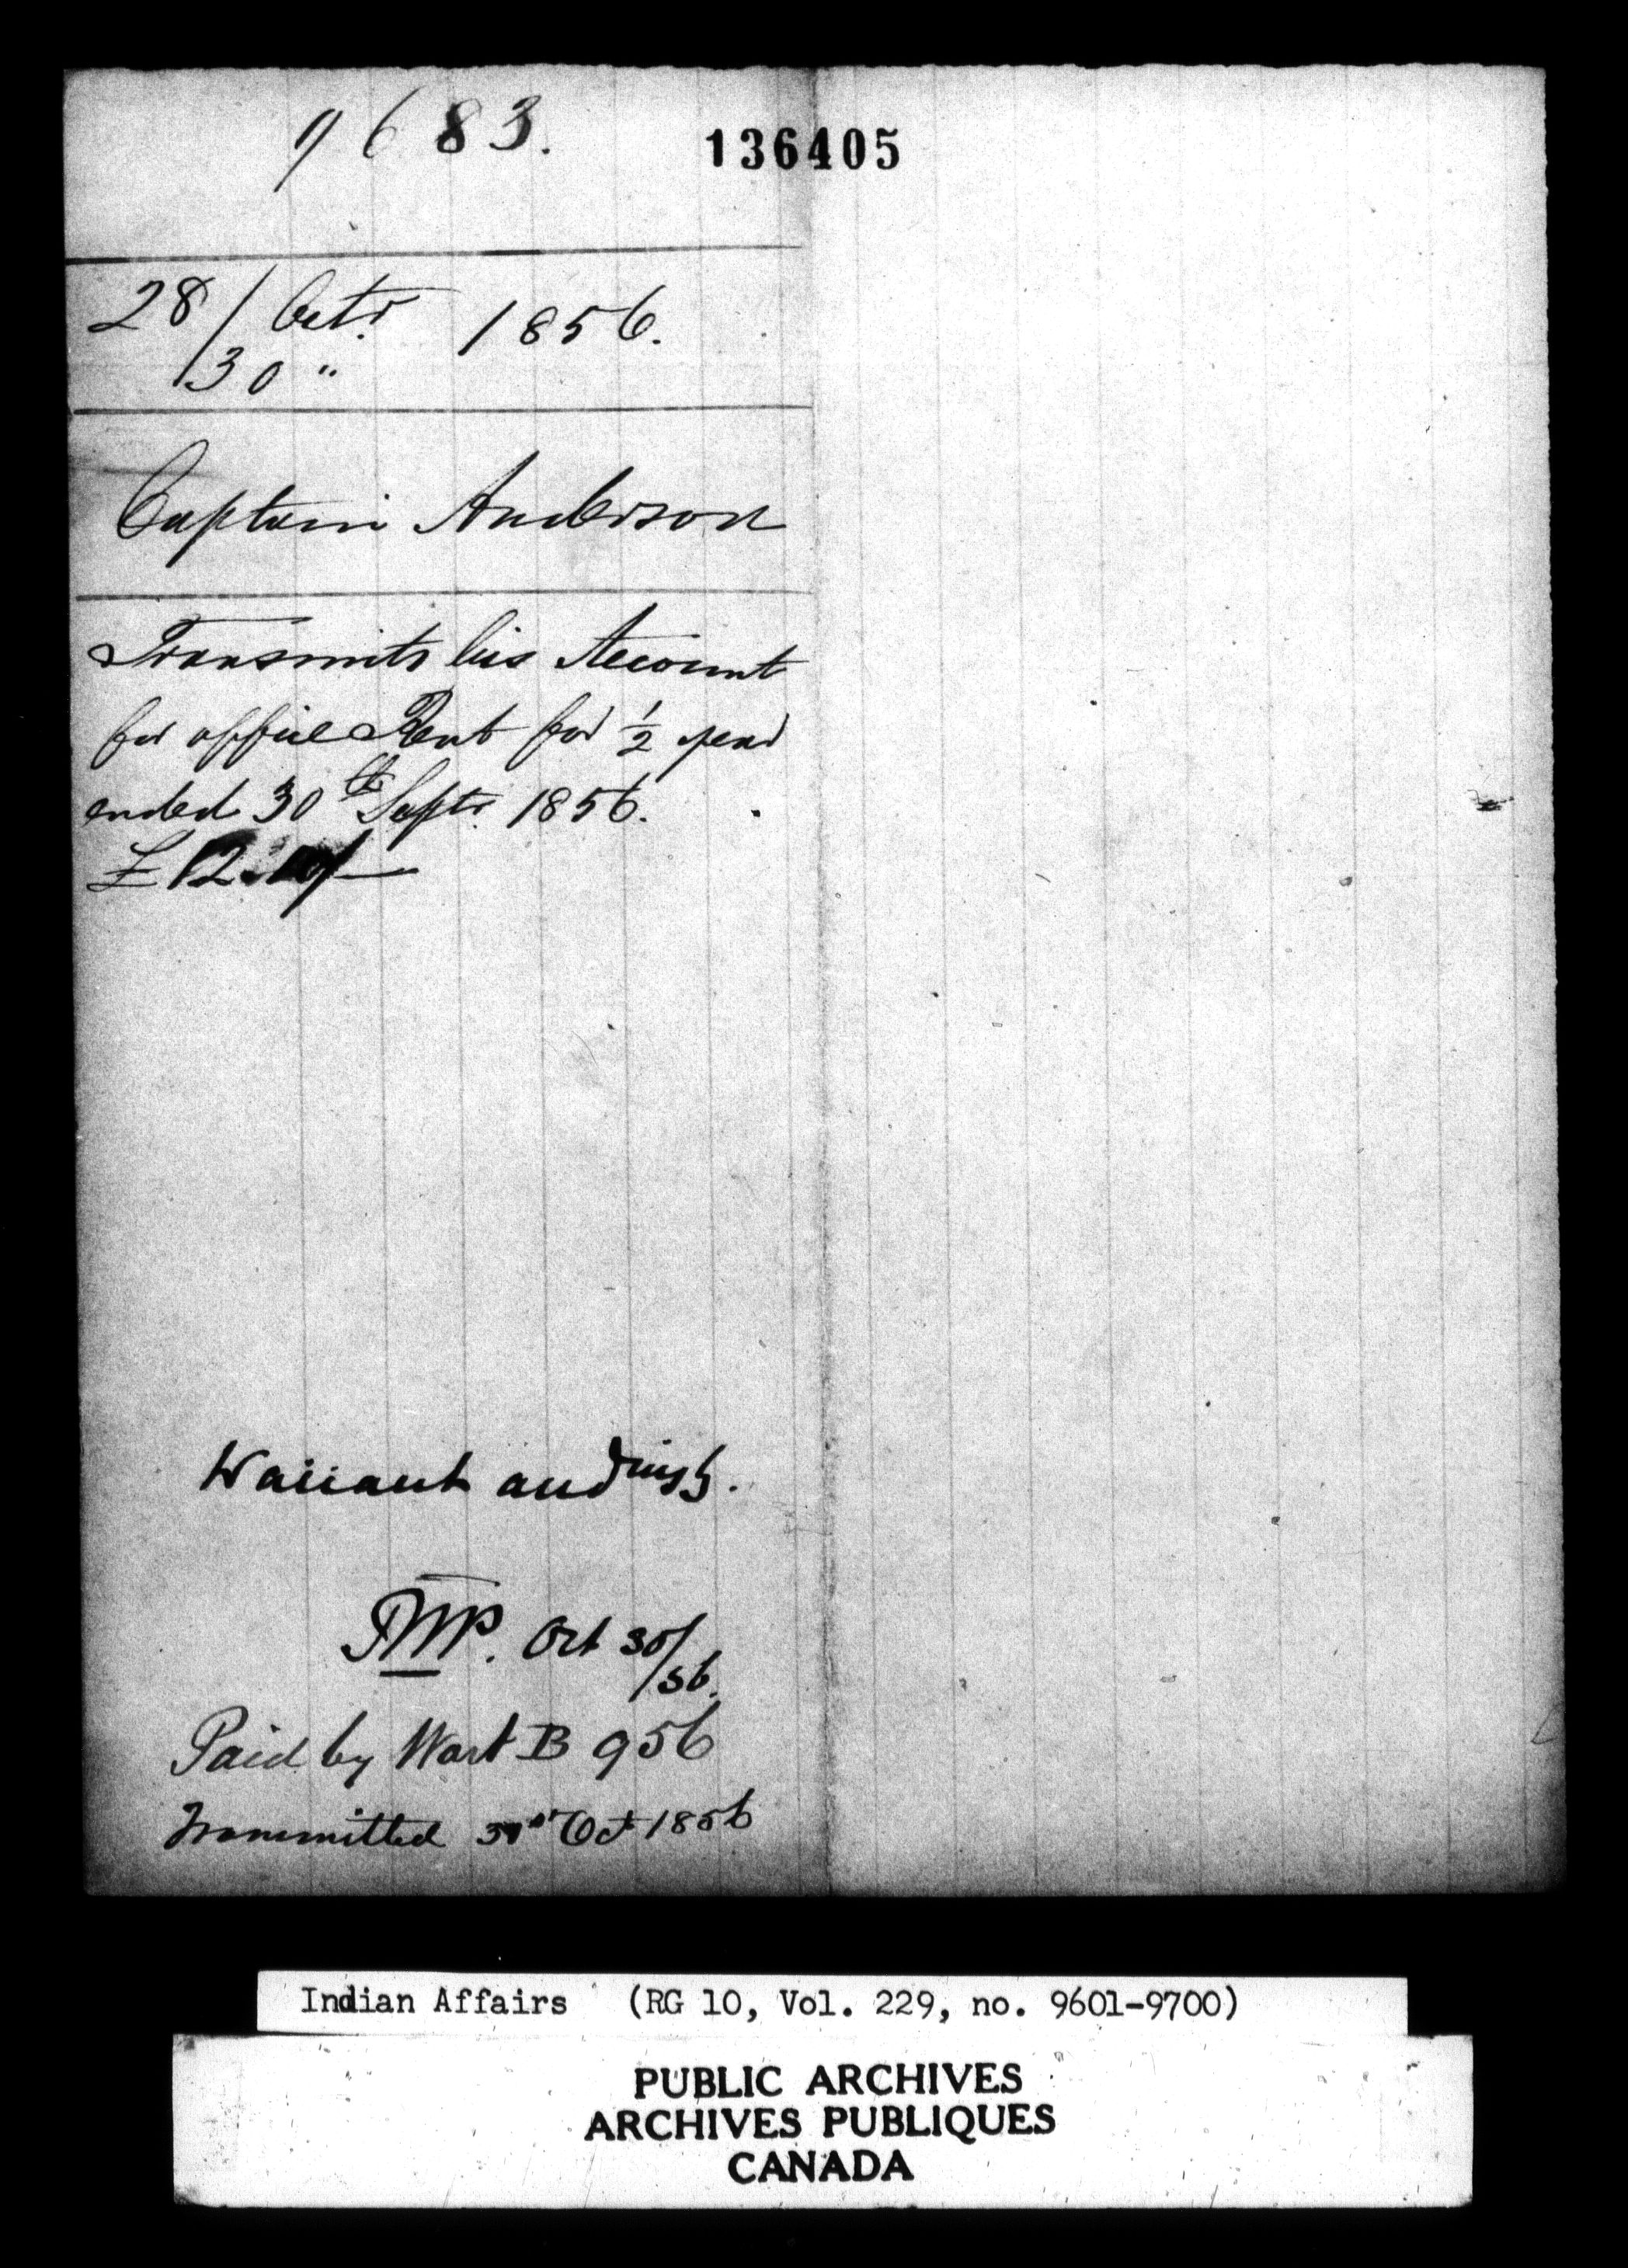 9683.
136405
28/ Octr. 1856.
/30 "
Captain Anderson
Transmits his Account
for office Rent for ½ year
ended 30th Septr. 1856.
£12.10/
Warrant and
RTP. Oct 30/56.
Paid by Wart B 956
Transmitted Oct 1856
Indian Affairs (RG 10, Vol. 229, no. 9601-9700)
PUBLIC ARCHIVES
ARCHIVES PUBLIQUES
CANADA